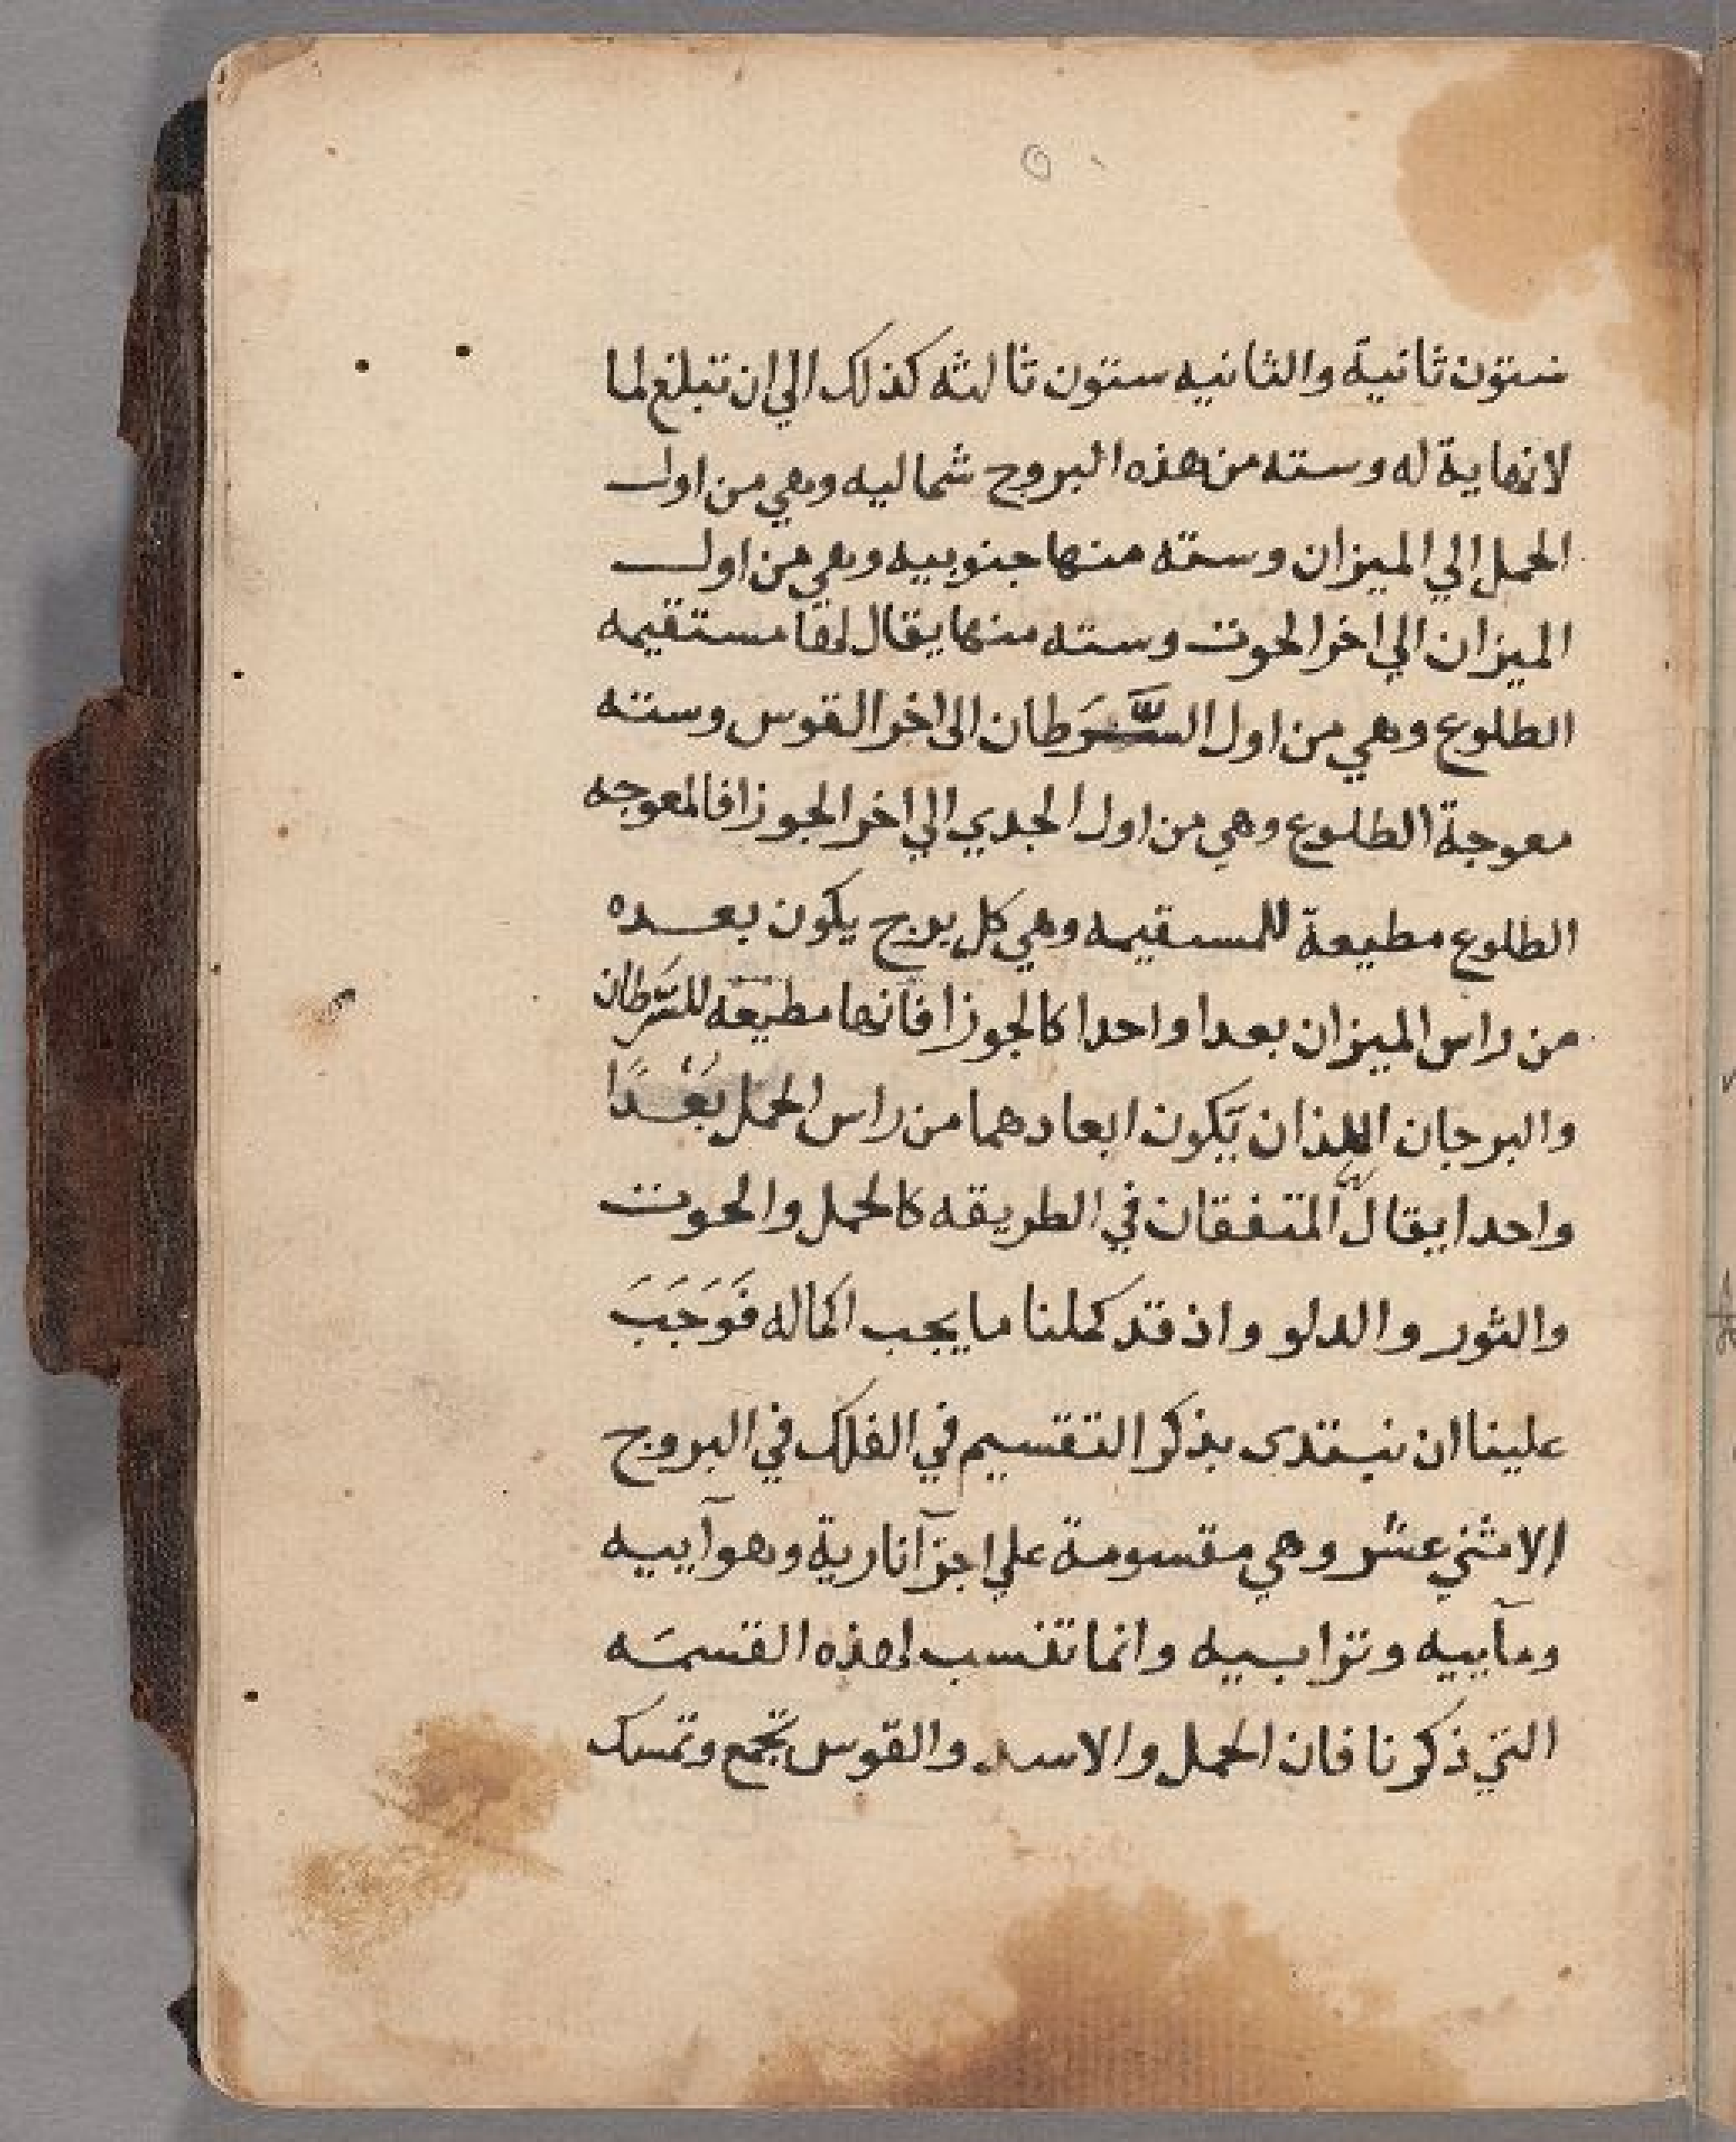 ستون ثانية والثانيه ستون ثالثه كذلك الي ان تبلغ لما
لانهاية له وسته من هذه البروج شماليه وهي من اول
الحمل الي الميزان وسته منها جنوبيه وهي من اول
الميزان الي اخر الحوت وسته منها يقال لها مستقيمه
الطلوع وهي من اول السَّرَطان الى اخر القوس وسته
معوجة الطلوع وهي من اول الجدي الي اخر الجوزا فالمعوجه
الطلوع مطيعة للمستقيمه وهي كل برج يكون بعده
من راس الميزان بعدا واحدا كالجوزا فانها مطيعة للسَّرَطان
والبرجان اللذان يكون ابعادهما من راس الحمل بُعْدَا
واحدا يقال لهما المتفقان في الطريقه كالحمل والحوت
والثور والدلو واذ قد كملنا ما يجب اكماله فَوَجَبَ
علينا ان نبتدى بذكر التقسيم في الفلك في البروج
الاثني عشر وهي مقسومة علي اجزآ نارية وهوآييه
ومآييه وترابييه وانما تنسب لهذه القسمَه
التي ذكرنا فان الحمل والاسد والقوس تجمع وتمسك